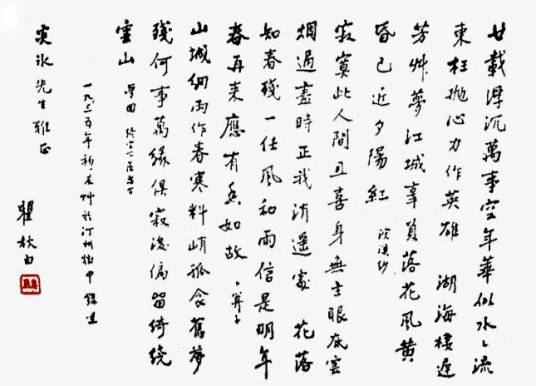 廿載浮沉萬事空年華似水々流
東枉拋心力作英雄 湖海棲遲
芳艸夢江城辜負落花風黃
昏已近夕陽紅 浣溪紗
寂寞此人間且喜身無主眼底雲
烟過盡時正我逍遙處 花落
知春殘一任風和雨信是明年
春再來應有香如故 卜算子
山城細雨作春寒料峭孤衾舊夢
殘何事萬緣俱寂後偏留綺繞
雲山 夢回
一九三五年初 艸於汀州獄中 錄呈
先生雅正
瞿秋白